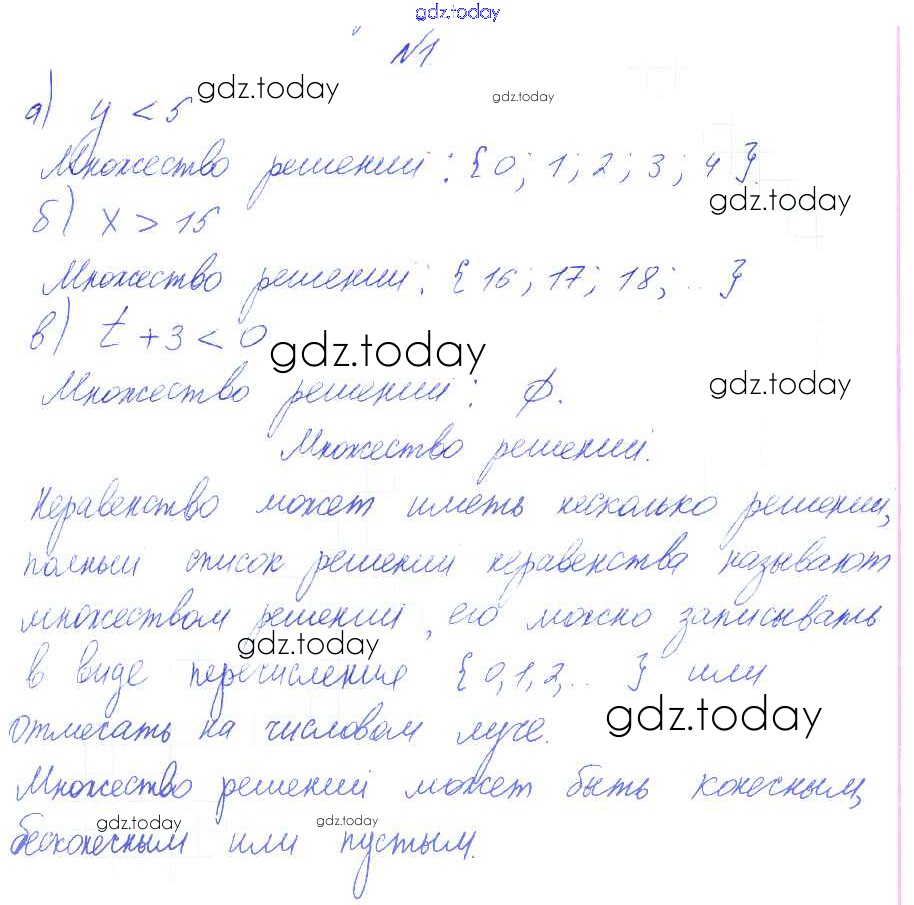 gdz.today
№1.
а) y < 5 gdz.today gdz.today
Множество решений: {0; 1; 2; 3; 4}.
б) x > 15 gdz.today
Множество решений: {16; 17; 18; ...}
в) t + 3 < 0 gdz.today
Множество решений: ∅. gdz.today
Множество решений.
Неравенство может иметь несколько решений,
полный список решений неравенства называют
множеством решений, его можно записывать
gdz.today
в виде перечисления {0,1,2,...} или
отмечать на числовом луче. gdz.today
Множество решений может быть конечным,
gdz.today gdz.today
бесконечным или пустым.